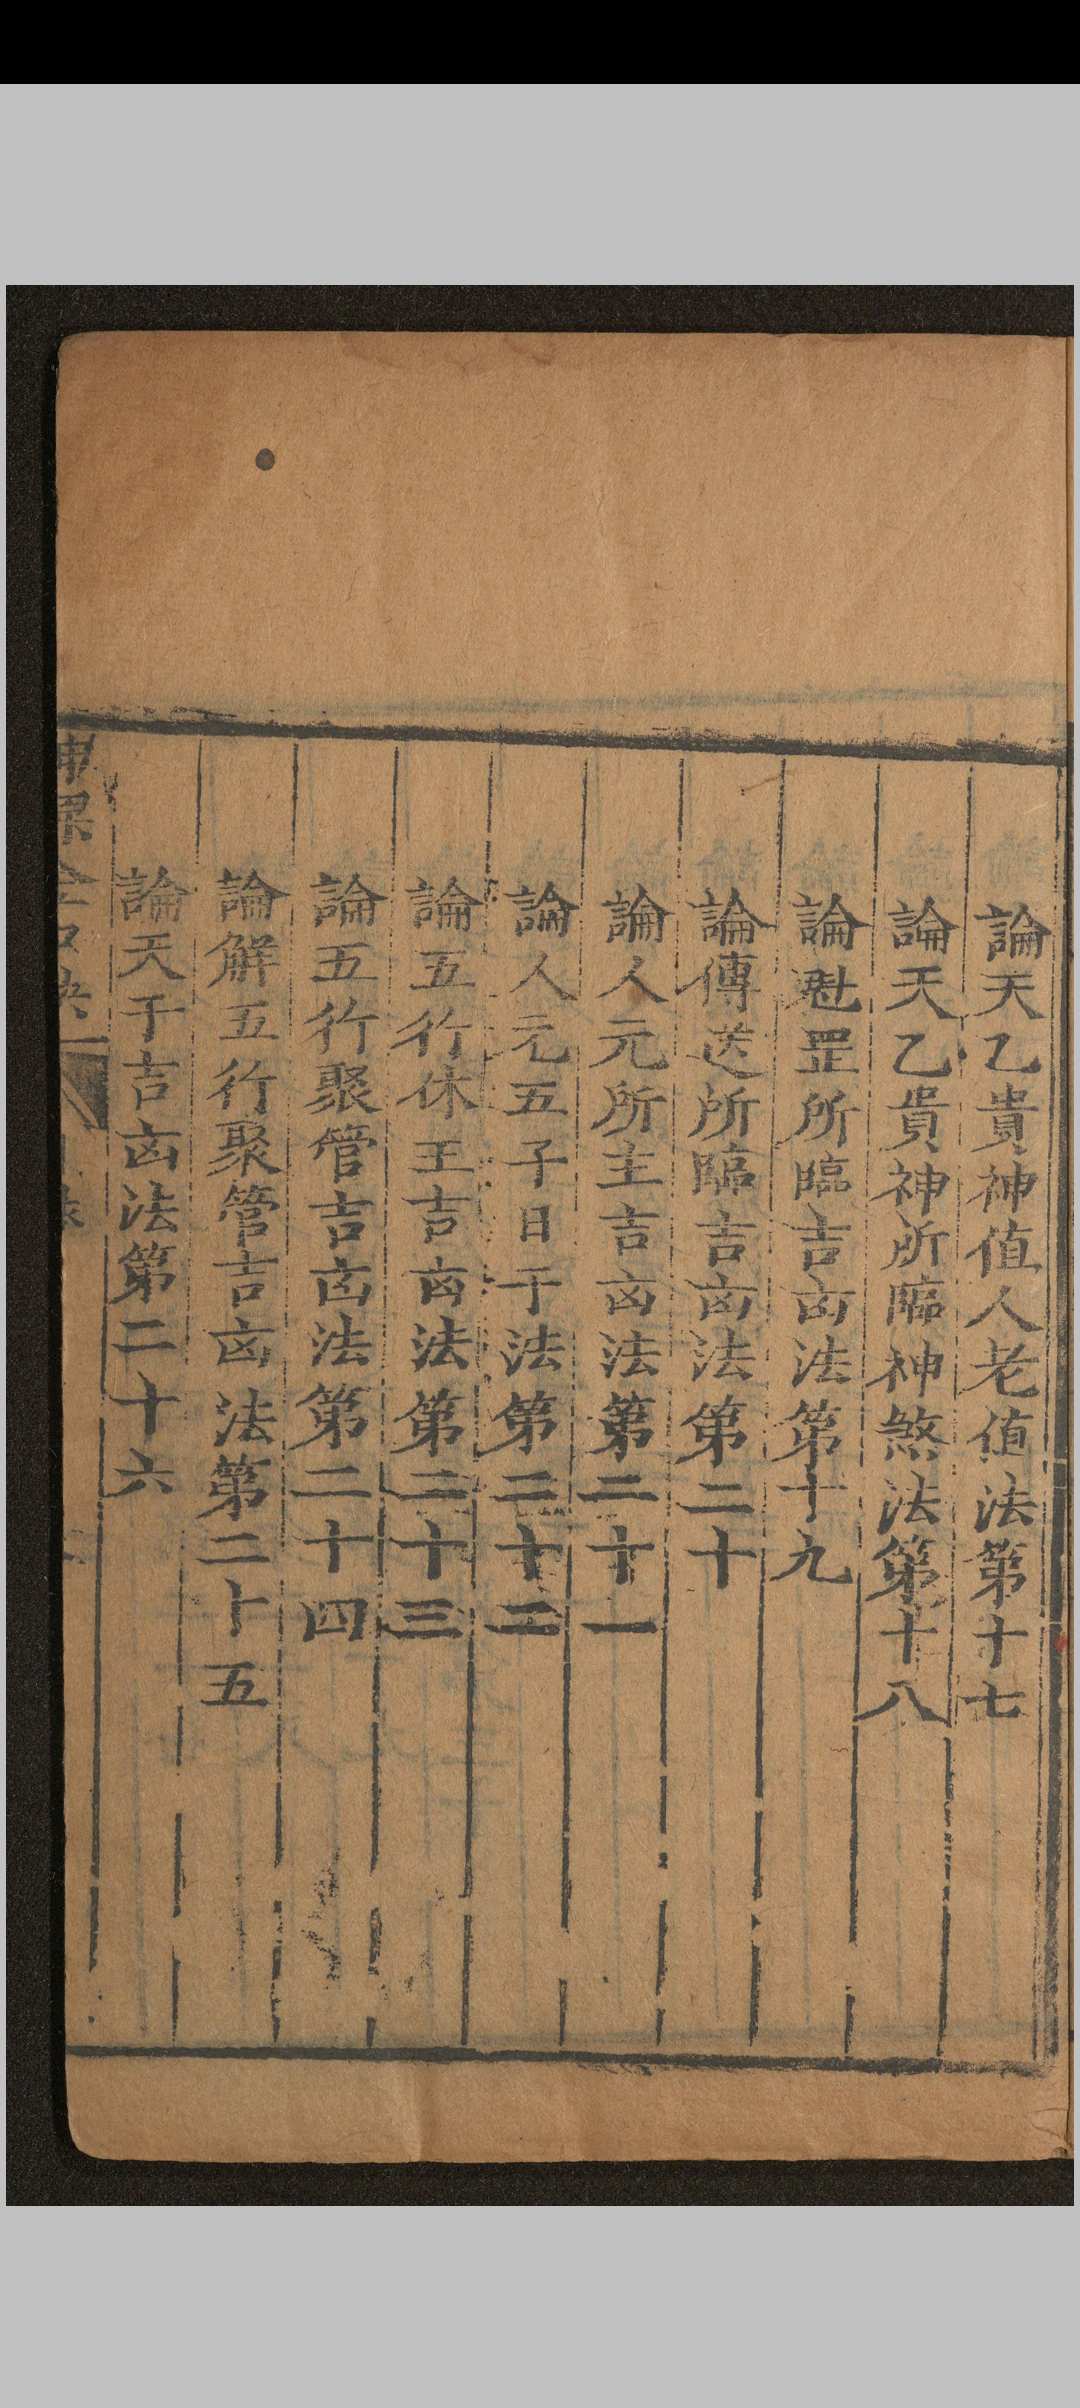 論天乙貴神值人老值法第十七
論天乙貴神所臨神煞法第十八
論魁罡所臨吉凶法第十九
論傳送所臨吉凶法第二十
論人元所主吉凶法第二十一
論人元五子日干法第二十二
論五行休王吉凶法第二十三
論五行聚管吉凶法第二十四
論解五行聚管吉凶法第二十五
論天干吉凶法第二十六